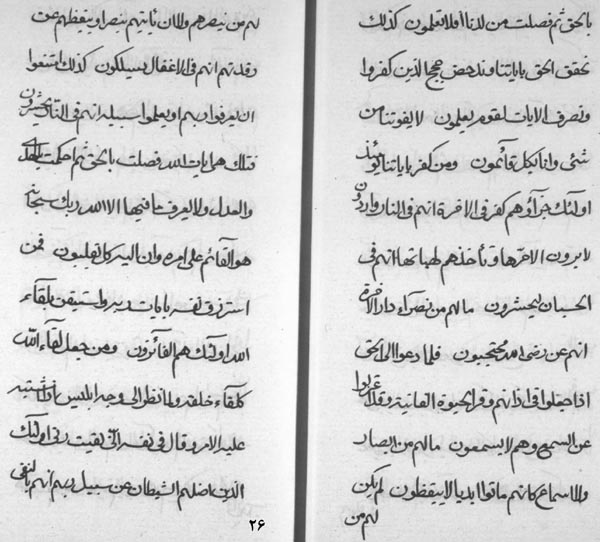 بالحق ثم فصلت من لدنا افلا تعلمون كذلك
نحقق الحق باياتنا وندحض حجج الذين كفروا
ونصرف الايات لقوم يعلمون لا يفوتنا من
شئ وانا بكل قائمون ومن كفر باياتنا يومئذ
اولئك جزآؤهم كفر فى الاخرة انهم فى النار واردون
لا يرون الا حرها وتأخذهم لهباتها انهم فى
الحسبان ليحشرون مالهم من نصرآء دار الاخرة
انهم عن رضى الله محتجبون فلما دعوا الى الحق
اذا جعلوا فى اذانهم وقر الحيوة الفانية وقد عزلوا
عن السمع وهم لا يسمعون مالهم من ابصار
ولا اسماع كانهم ماتوا ابديا لا يستيقظون لم يكن
لهم من
لهم من ينصرهم ولا ان ياتيهم بنصر او يتفيظهم عن
رقدتهم انهم فى الاغفال يسيلكون كذلك امتنعوا
ان يعرفوا ربهم او يعلموا سبيله انهم فى النار يحشرون
فتلك هى ايات الله فصلت بالحق ثم احكمت بالعدل
والعدل ولا يعرف ما فيها الا الله ربك سبحانه
هو القائم على امره وان اليه كل تقلبون فمن
استرزق نفسه بايات ربه واستيقن بلقآء
الله اولئك هم الفآئزون ومن جعل لقآء الله
كلقآء خلقه ولما نظر الى وجه ابليس اذا اشتبه
عليه الامر وقال فى نفسه انى لقيت ربى اولئك
الذين اضلهم الشيطان عن سبيل ربهم انهم لفى
٢۶